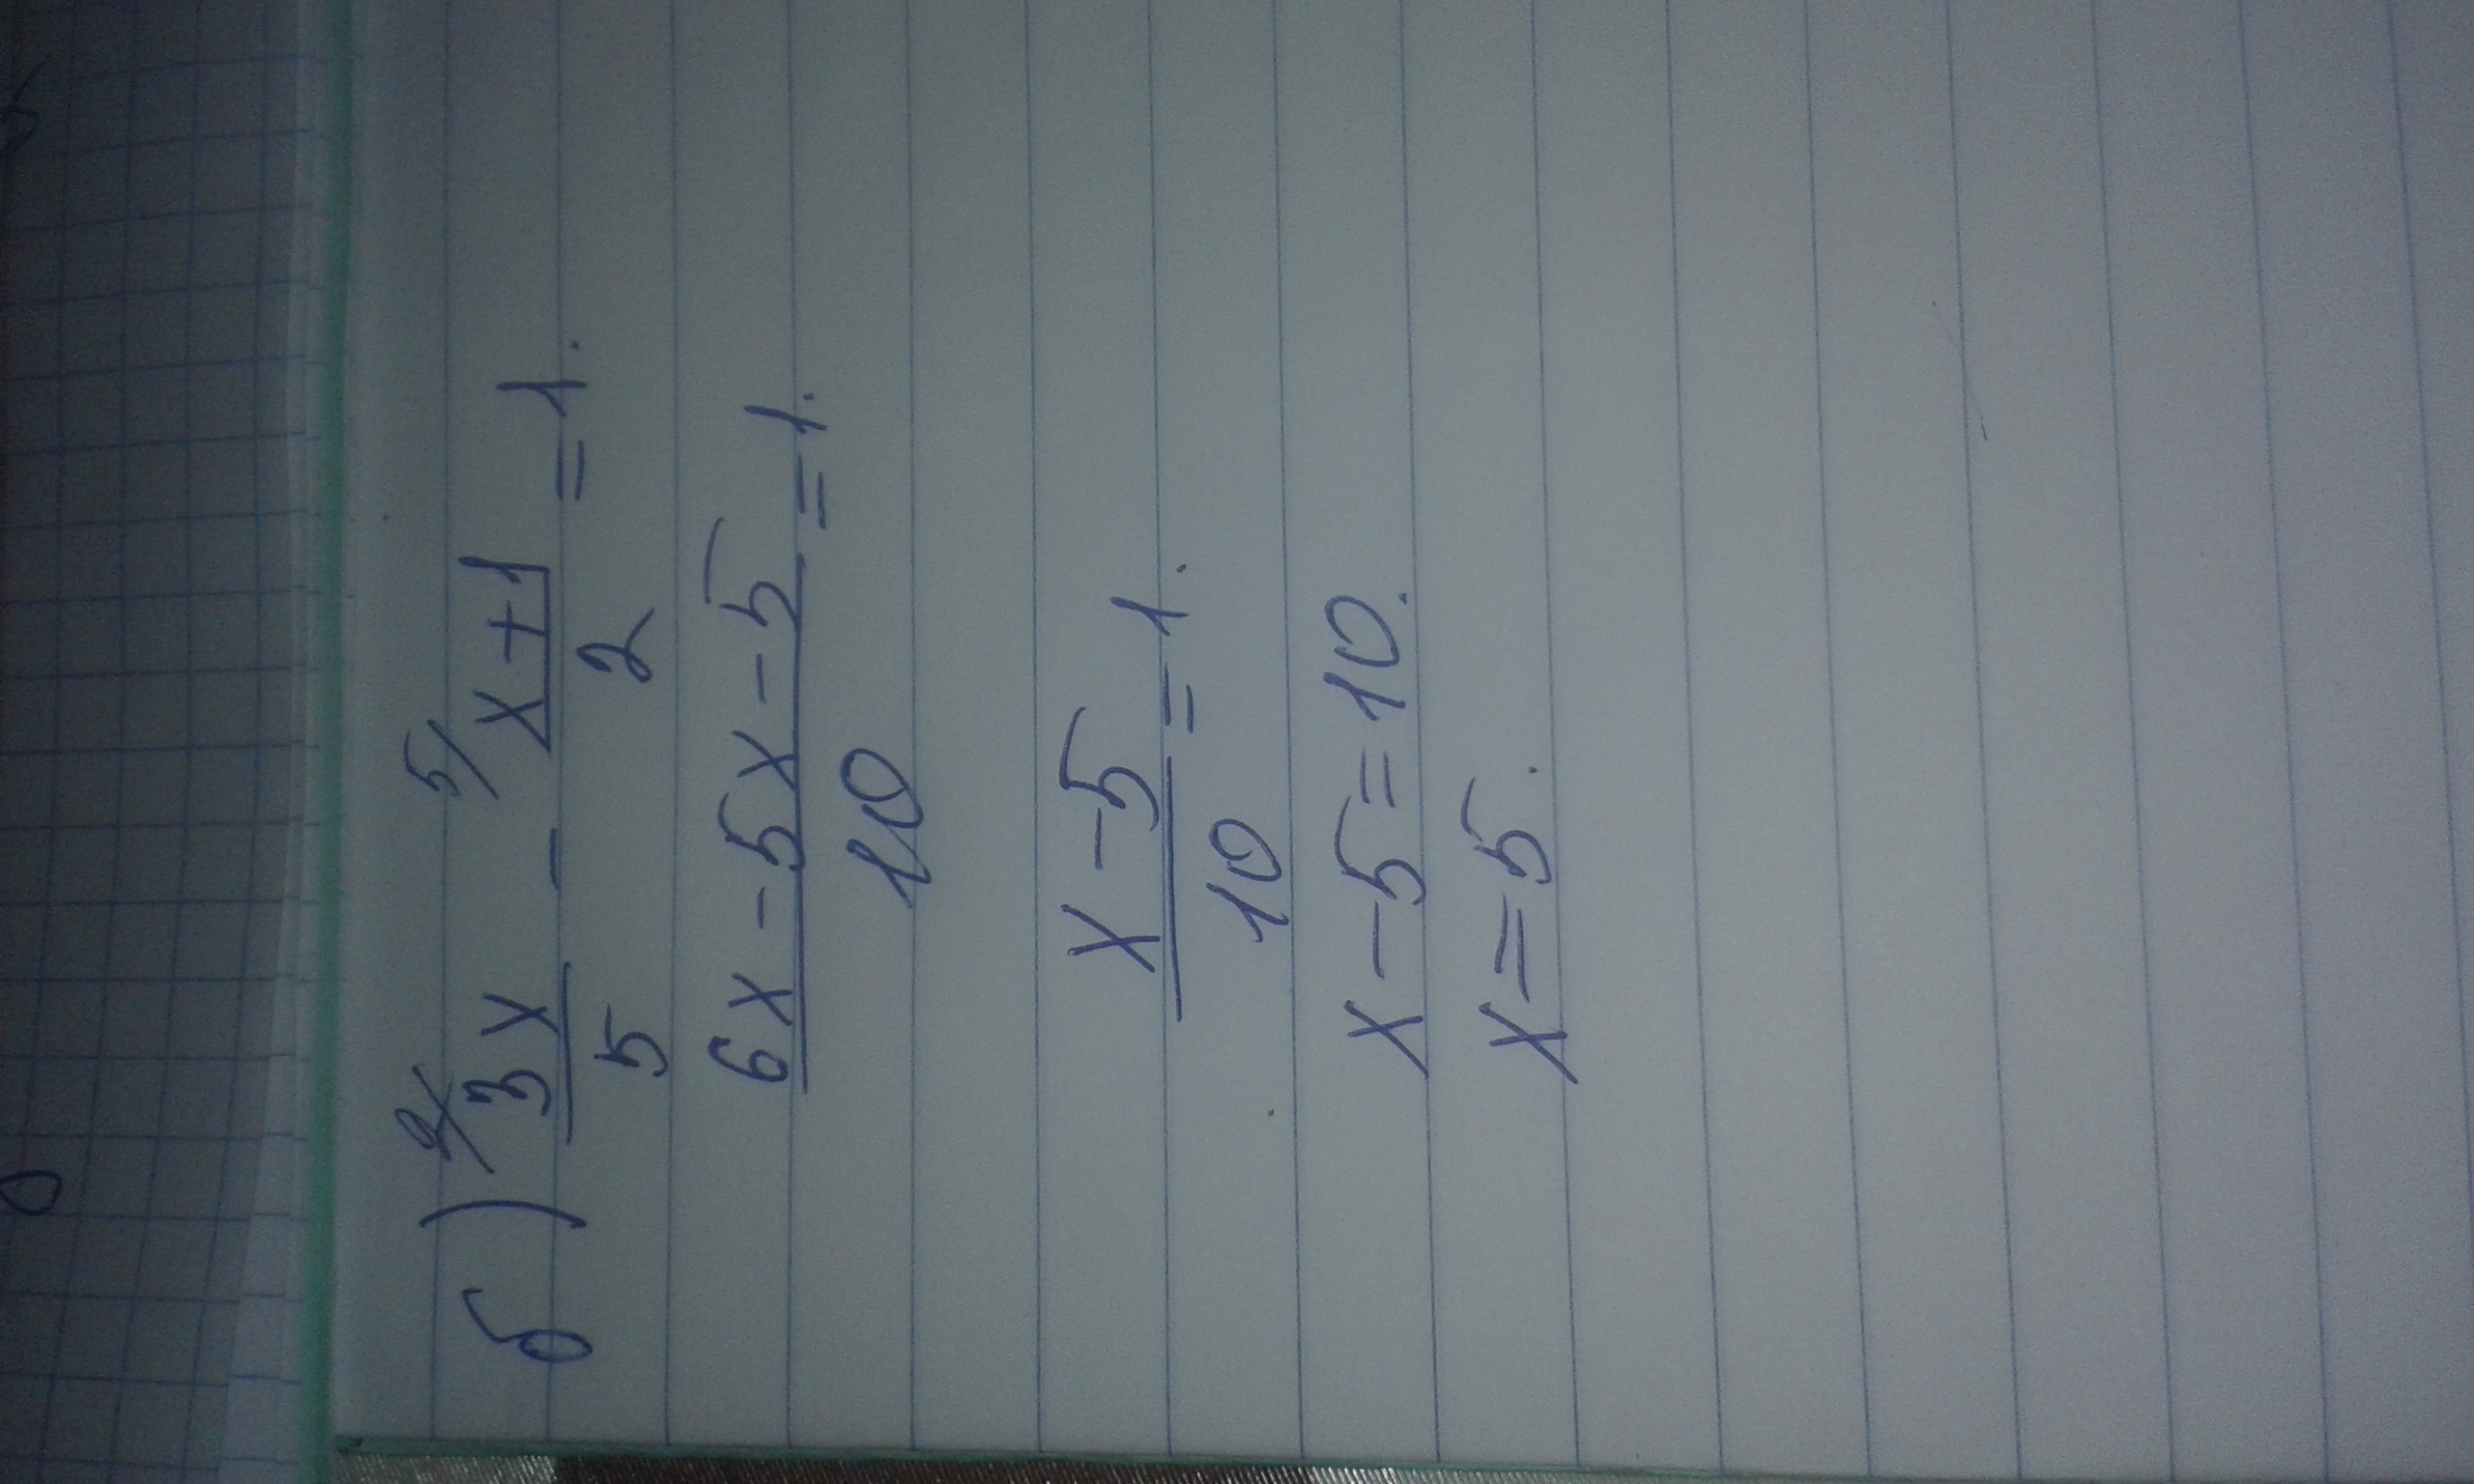 б) 2/ 3x/5 - 5/ x+1/2 = 1.
6x-5x-5/10 = 1.
x-5/10 = 1.
x-5=10.
x=5.